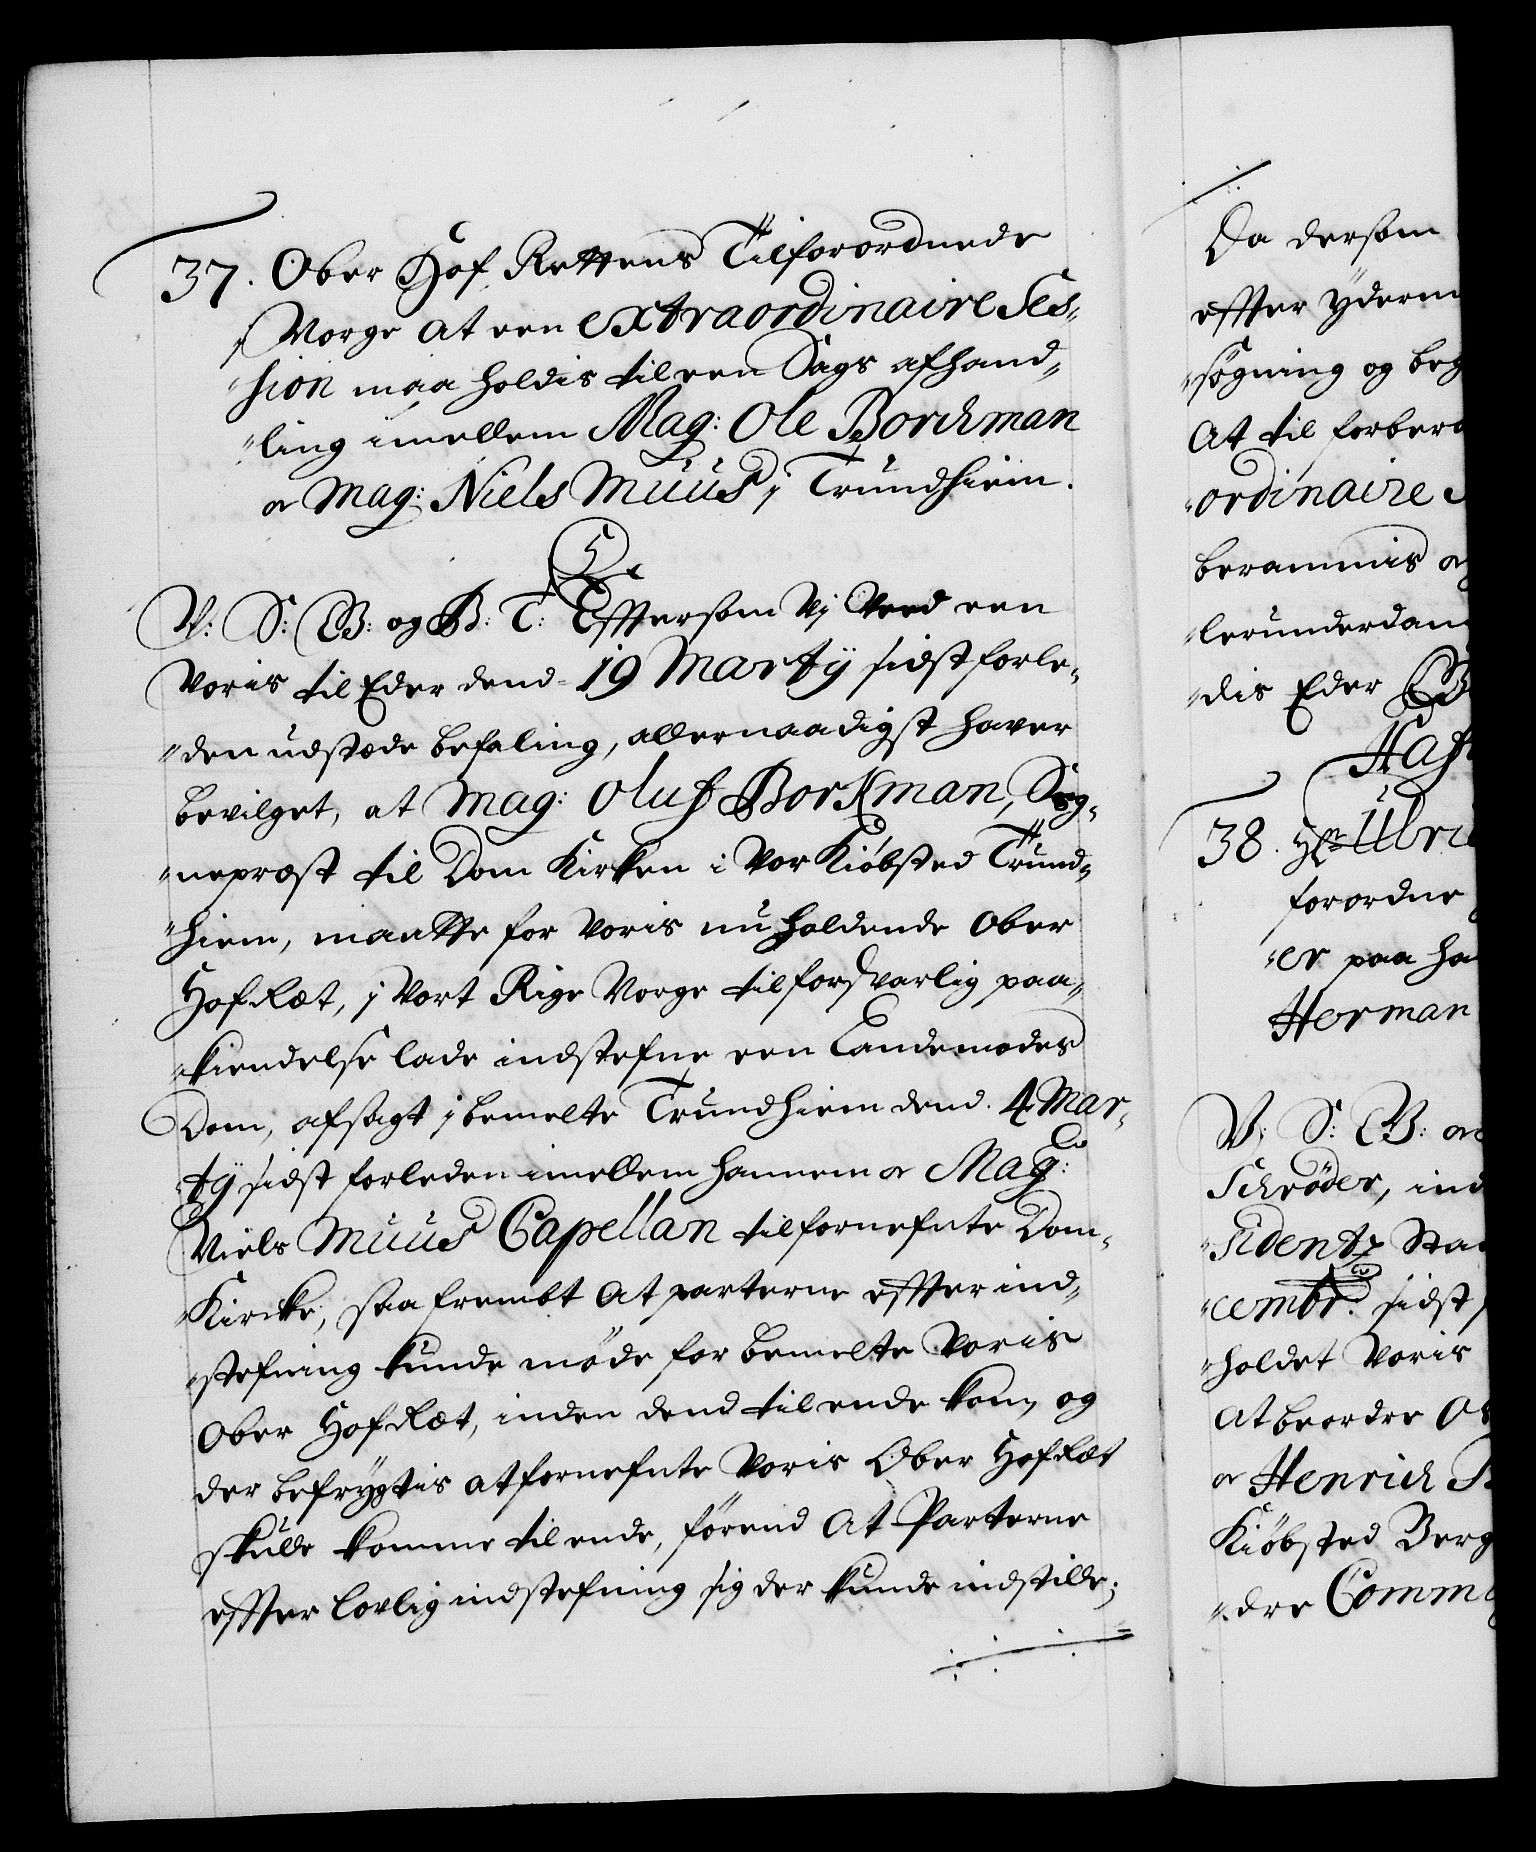 37. Ober Hof Rettens Tilforordnede
i Norge at een extraordinaire Ses„
„sion maa holdis til een Sags afhand„
„ling imellem Mag: Ole Borchman
og Mag: Niels Muus i Trundhiem.
V: S: G B: og B: T: Eftersom Vi Veed een
Voris til Eder dend 19 Marty sidst forle„
„den udstæde befaling, allernaadigst hafver
bevilget, at Mag: Oluf Borkman, Sog„
„nepræst til Dom Kirken i Vor Kiøbsted Trund„
„hiem, maatte for Voris nu holdende Ober
HofRæt, i Vort Rige Norge til forsvarlig paa„
„kiendelse lade indstefne een Landemodes
Dom, afsagt i bemelte Trundhiem dend 4 Mar„
„ty sidst forleden imellem hannem og Mag:
Niels Muus Capellan til fornefnte Dom„
„Kircke, saa frembt at parterne effter ind„
„stefning kunde møde for bemelte Voris
Ober HofRæt, inden dend til ende kom, og
der befrygtis at fornefnte Voris Ober HofRæt
skulle komme til ende, førend at Parterne
effter lovlig indstefning sig der kunde indstille;
Da dersom
effter yderm
„søgning og beg
At til forbem
„ordinaire S
berammis og
„lerunderdan
„dis Eder
Haf
38. Hr Ulri
forordne
„er paa ha
Herman
V: S: G B: og
Schrøder, ind
„sidentz Sta
„cembr: sidst
„holdet Voris
at beordre
og Henrich
Kiøbsted Berg
„dre Comm